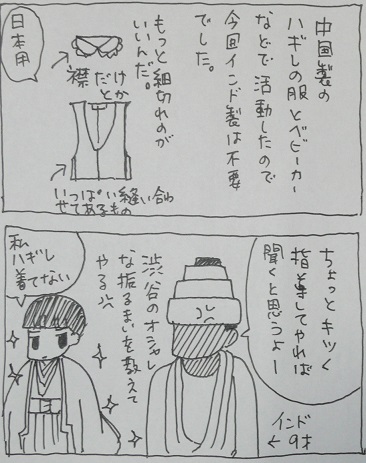 中国製の
ハギレの服とベビーカー
などで活動したので
今回インド製は不要
でした。
もっと細切れのが
いいんだ。
日本用
襟だけ
とか
いっぱい縫い合わ
せてあるもの
ちょっとキツく
指導してやれば
聞くと思うよー
渋谷のオシャレ
な振るまいを教えて
やる
私
ハギレ
着てない
インド
9才